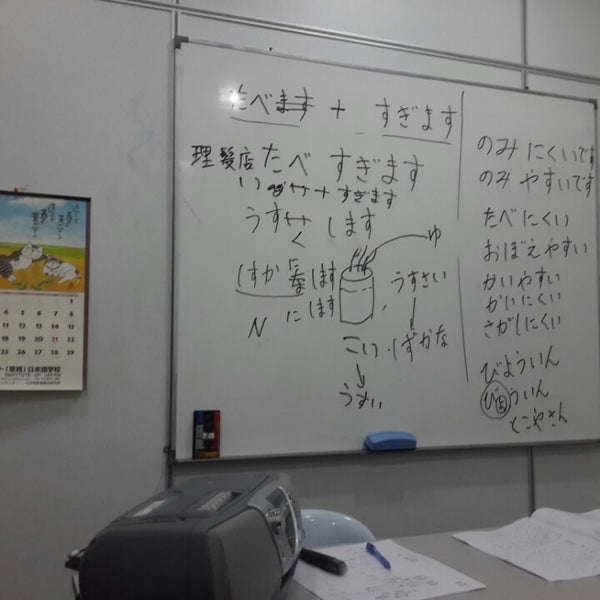 たべます + すぎます
理髮店 たべ すぎます
すぎます
うす
く します
しずか に します
N に します
ゆ
うすさい
こい しずかな
うすい
のみ にくいです
のみ やすいです
たべにくい
おぼえやすい
かいやすい
かいにくい
さがしにくい
びよういん
びょういん
とこやさん
1
4 5 6 7 8
11 12 13 14 15
18 19 20 21 22
25 26 27 28 29
日本語学校
INSTITUTE OF JAPAN